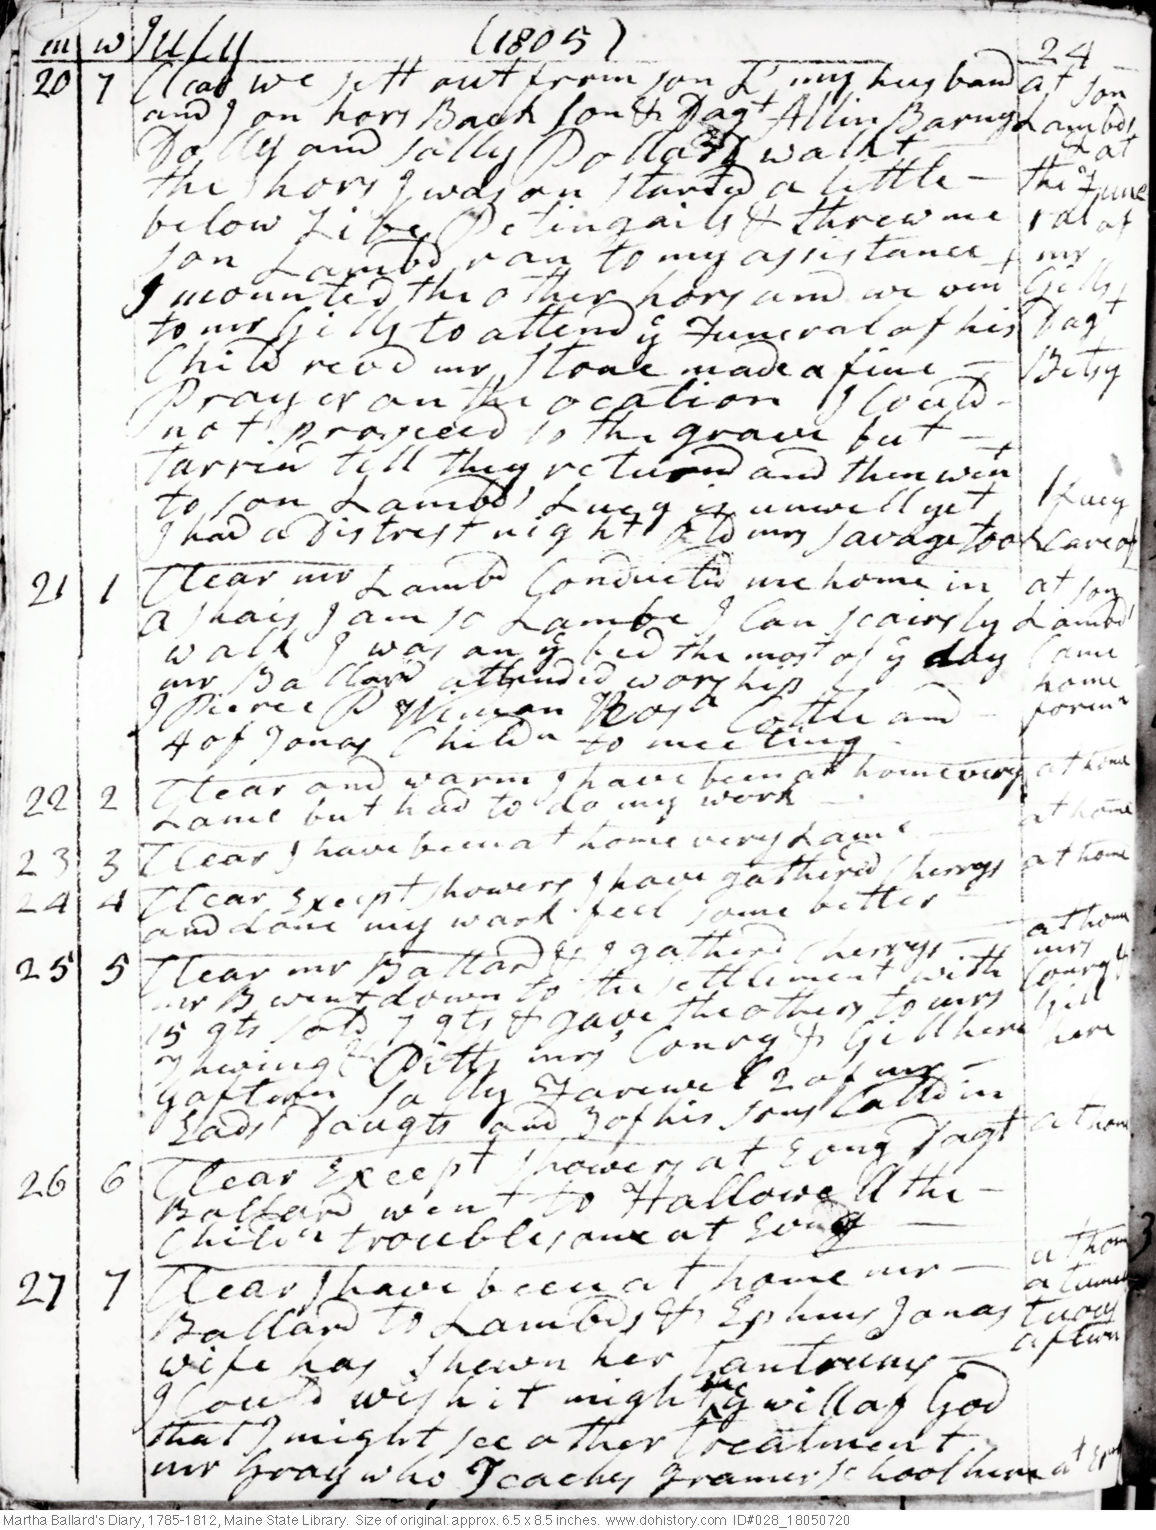 m w July (1805) 24
20 7 Clear we sett out from son Ls my husband at son
and I on hors Back son & Dagt Allin Barny Lambds
Dolly and Sally Pollard walkt – at
the hors I was on started a little – the Fune
below Libe Petingails & threw me ral of
son Lambd ran to my assistance mr
I mounted the other hors and we wen Gills
to mr Gills to attend ye Funeral of his Dagt
Child revd mr Stone made a fine – Betsy
Prayer on the ocation I Could –
not proseed to the grave but –
tarried till they returnd and then went
to son Lambds Lucy is unwell yet Lucy
I had a Distrest night old mrs Savage took Care of
21 1 Clear mr Lambd Conducted me home in at son
a shais I am so Lambe I Can scairsly Lambds
walk I was on ye bed the most of ye day Came
mr Ballard attended worship home
J Pierce P Wiman Rosa Cottle and – foren n
4 of Jonas Childn to meeting –
22 2 Clear and warm I have been at home very at home
Lame but had to do my work –
23 3 Clear I have been at home very Lame – at home
24 4 Clear Except showers I have gathered Cherrys at home
and done my work feel some better –
25 5 Clear mr Ballard & I gatherd Cherrys – at home
mr B went down to the settlement with mrs
15 qts sold 7 qts & gave the others to mrs Conry &
Thwing Pitts mrs Conry & Gill here Gill
ye aftern Sally Farewel 2 of mr – here
Eads Daugts and 3 of his sons Calld in
26 6 Clear Except showers at Evng Dagt at home
Ballard went to Hallowell the –
Childn troublesome at Evng –
27 7 Clear I have been at home mr – at home
Ballard to Lambds & Ephms Jonas
wife has shewn her tantrums – aftern
I Could wish it might be ye will of God
that I might see other treatment
mr Gray who Teaches Gramer school here at
Martha Ballard's Diary, 1785-1812, Maine State Library. Size of original: approx. 6.5 x 8.5 inches. www.dohistory.com ID#028_18050720